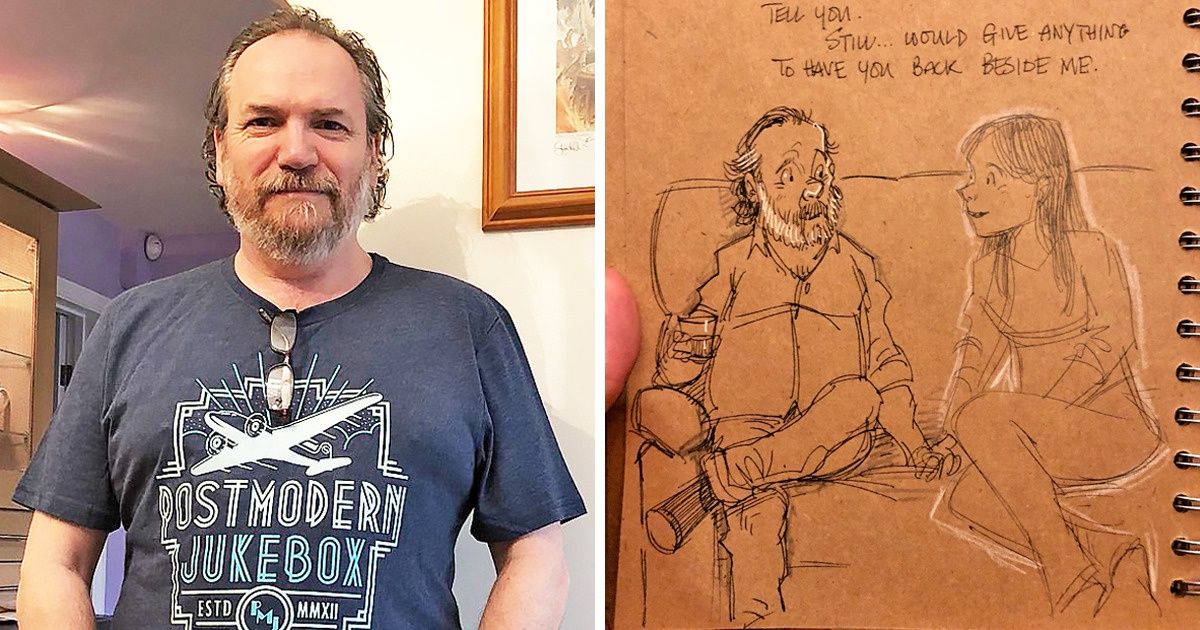 POSTMODERN
JUKEBOX
ESTD PMJ MMXII
TELL YOU.
STILL... WOULD GIVE ANYTHING
TO HAVE YOU BACK BESIDE ME.